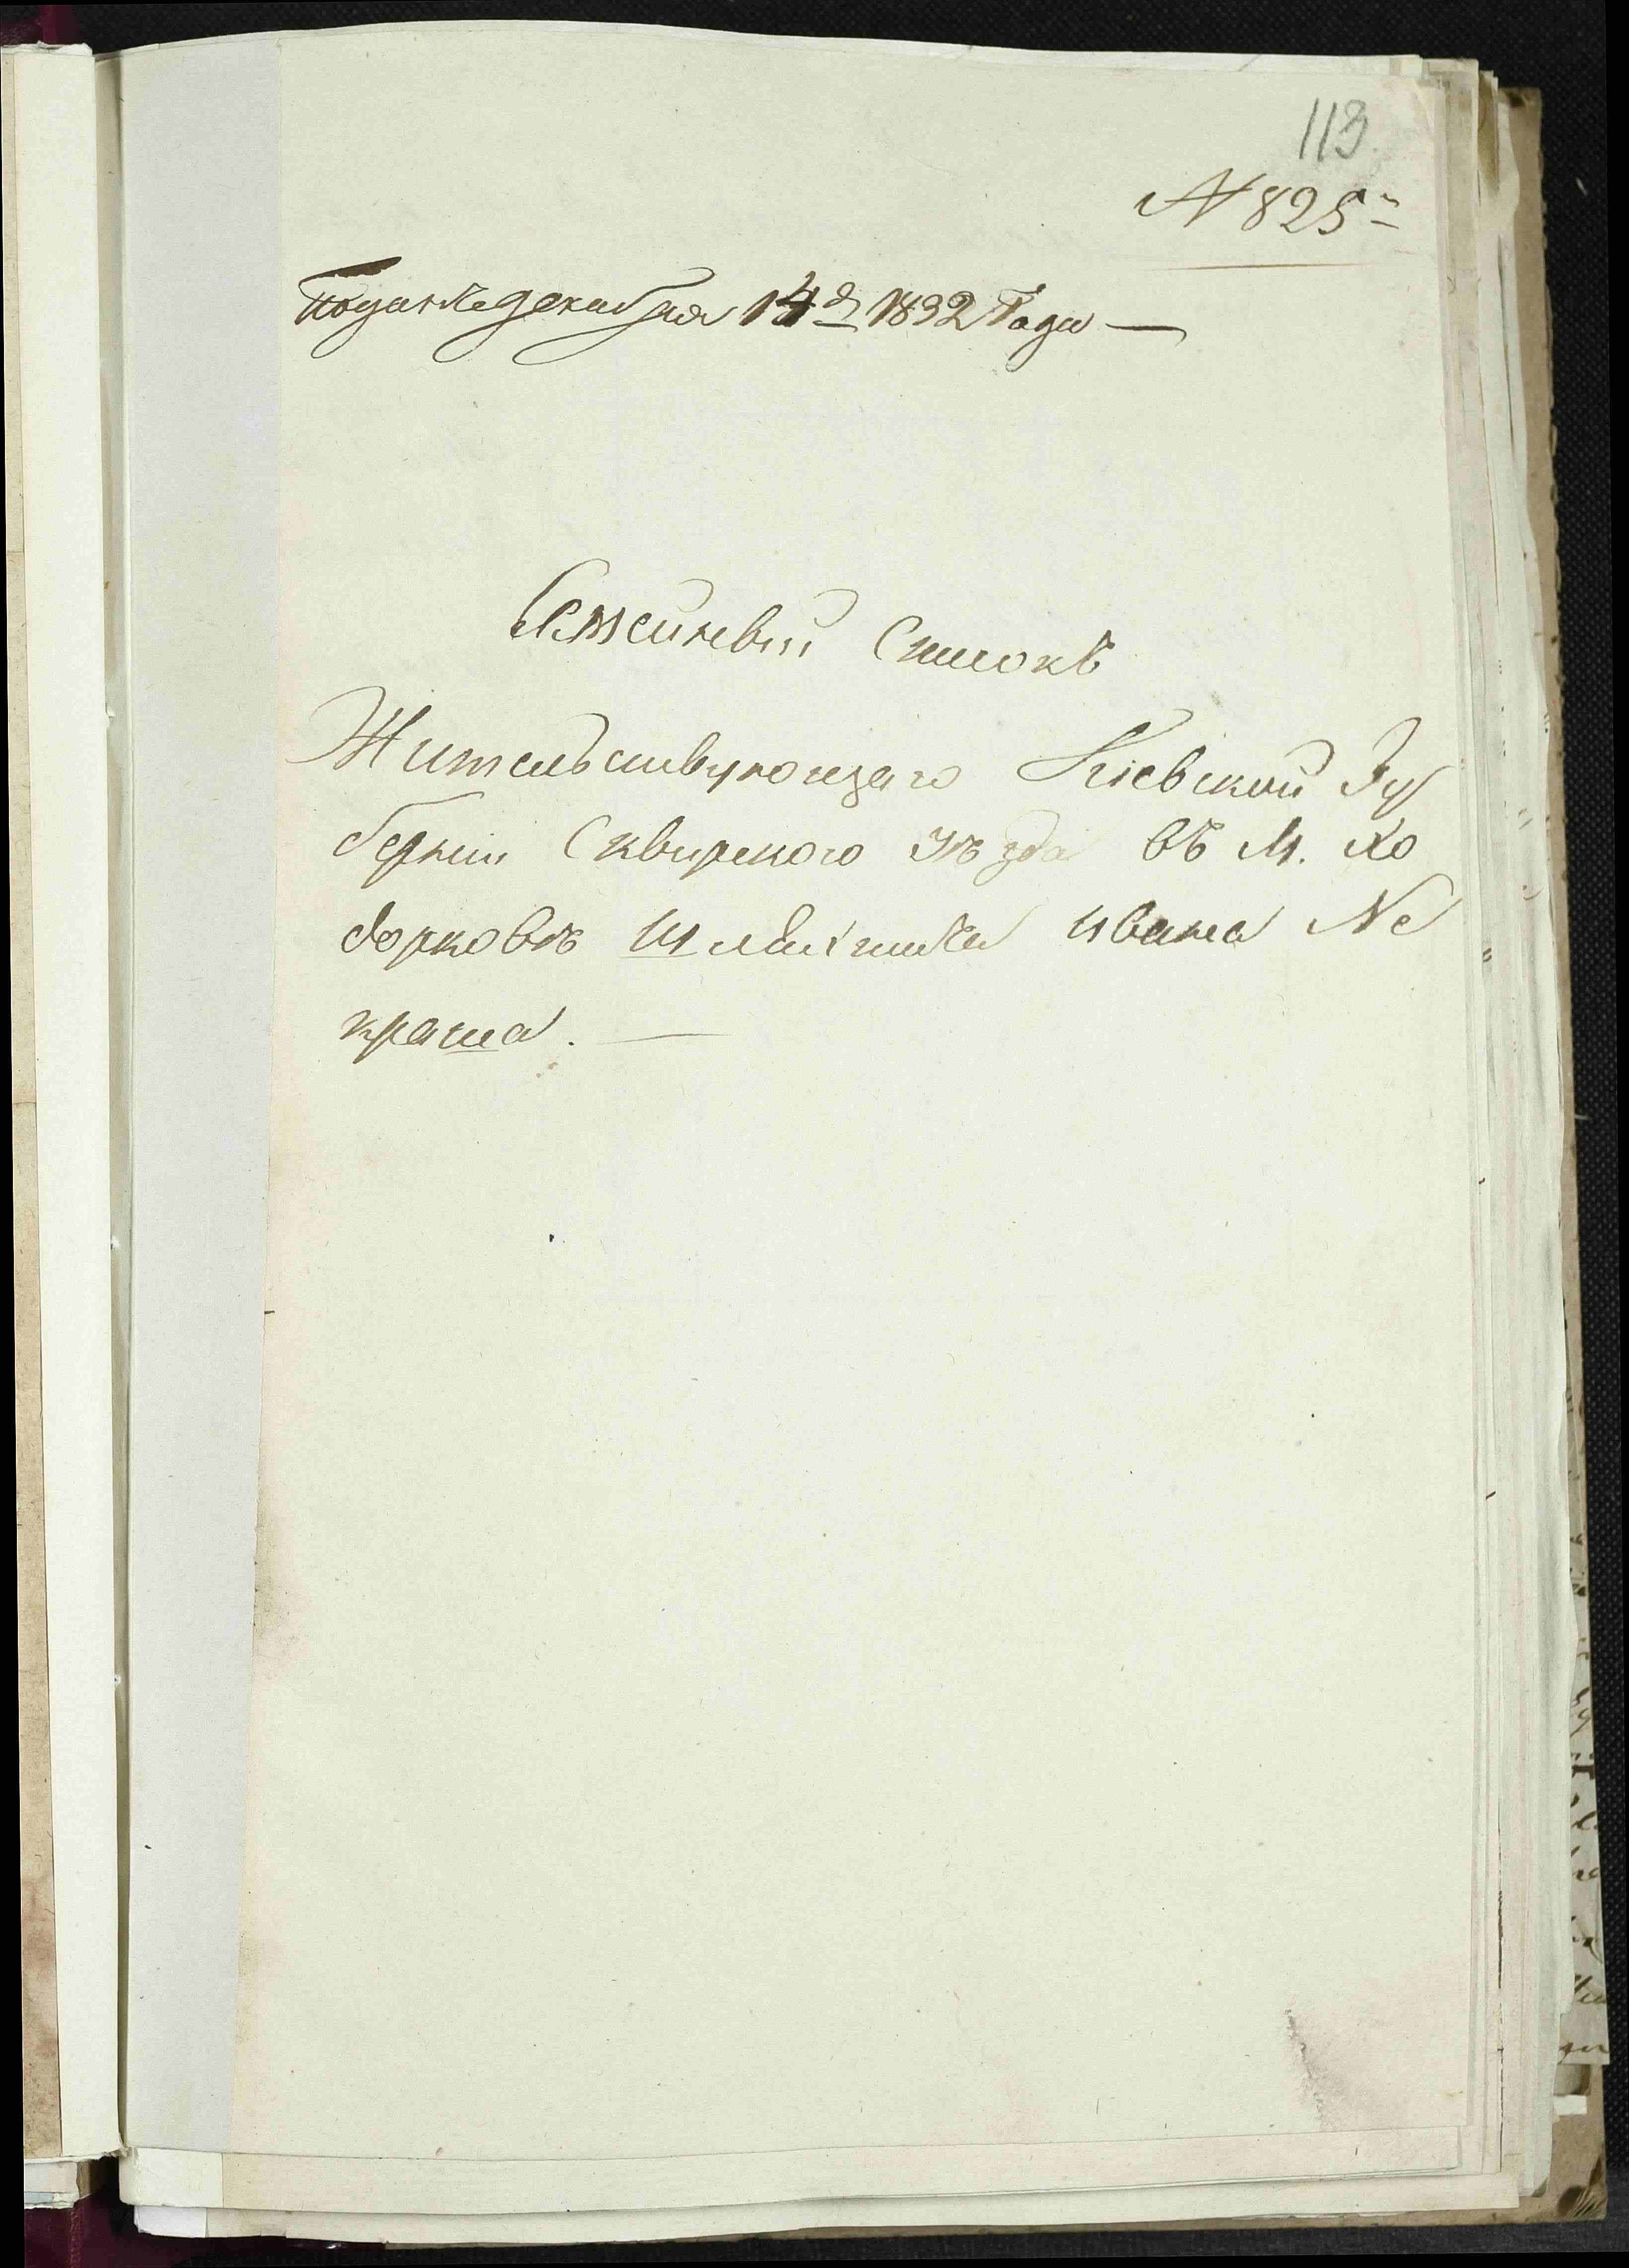 113
№ 825
Подан декабря 14 д 1832 Года —
Семейный Списокъ
Жительствующаго Кіевской Гу
берніи Сквирского уѣзда въ М. Хо
дорковѣ шляхтича Ивана Не
краша. —